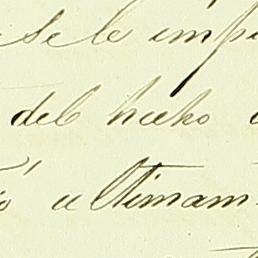 se le imp
del hecho
ó ultimam